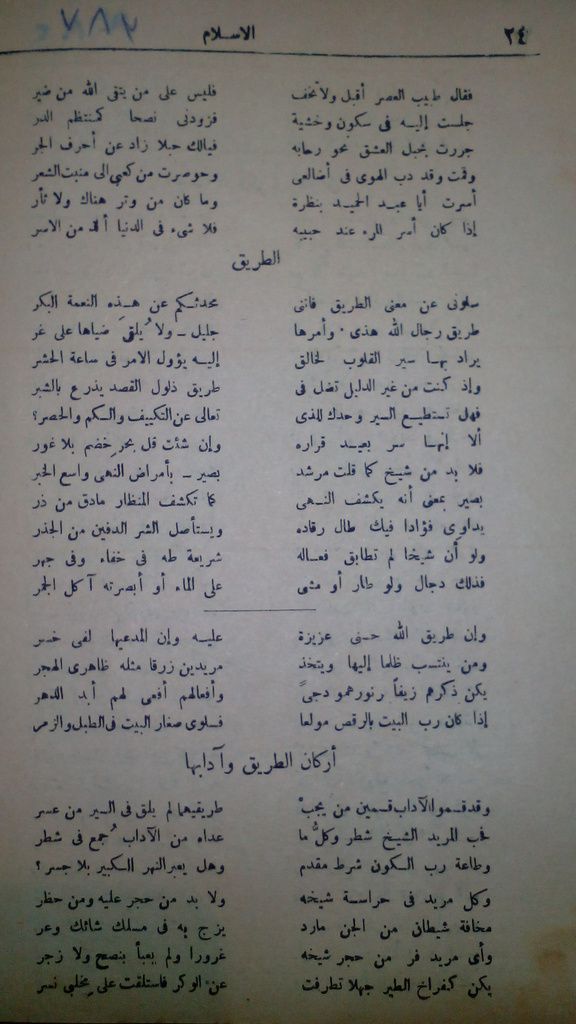 ٧٨٧
٢٤ الاسلام
فقال طبيب العصر أقبل ولا تخف فليس على من يتقى الله من ضير
جلست إليه فى سكون وخشية فزودنى نصحا كمنتظم الدر
جررت بحبل العشق نحو رحابه فيالك حبلا زاد عن أحرف الجر
وقمت وقد دب الهوى فى أضالعى وحوصرت من كعبى الى منبت الشعر
أسرت أيا عبد الحميد بنظرة وما كان من وتر هناك ولا ثأر
إذا كان أسر المرء عند حبيبه فلا شىء فى الدنيا ألذ من الاسر
الطريق
سلونى عن معنى الطريق فاننى محدثكم عن هذه النعمة البكر
طريق رجال الله هذى. وأمرها جليل ــ ولا ُيلقىَ ضياها على غر
يراد بها سير القلوب لخالق إليه يؤول الامر فى ساعة الحشر
وإذ كنت من غير الدليل تضل فى طريق ذلول القصد يذرع بالشبر
فهل تستطيع السير وحدك للذى تعالى عن التكييف والكم والحصر؟
ألا إنها سر بعيد قراره وإن شئت قل بحر خضم بلا غور
فلا بد من شيخ كما قلت مرشد بصير ــ بأمراض النهى واسع الخبر
بصير بمعنى أنه يكشف النهى كما تكشف المنظار مادق من ذر
يداوى فؤادا فيك طال رقاده ويستأصل الشر الدفين من الجذر
ولو أن شيخا لم تطابق فعاله شريعة طه فى خفاء وفى جهر
فذلك دجال ولو طار أو مشى على الماء أو أبصرته آكل الجمر
وإن طريق الله حسنى عزيزة عليه وإن المدعيها لفى خسر
ومن ينتسب ظلما إليها ويتخذ مريدين زرقا مثله ظاهرى الهجر
يكن ذكرهم زيفاً ونورهمو دجىً وأفعالهم أفعى لهم أبد الدهر
إذا كان رب البيت بالرقص مولعا فسلوى صغار البيت فى الطبل والزمر
أركان الطريق وآدابها
وقد قسموا الآداب قسمين من يجبْ طريقيهما لم يلق فى السير من عسر
فحب المريد الشيخ شطر وكلُّ ما عداه من الآداب ُجمع فى شطر
وطاعة رب الكون شرط مقدم وهل يعبر النهر الكبير بلا جسر؟
وكل مريد فى حراسة شيخه ولا بد من حجر عليه ومن حظر
مخافة شيطان من الجن مارد يزج به فى مسلك شائك وعر
وأى مريد فر من حجر شيخه غرورا ولم يعبأ بنصح ولا زجر
يكن كفراخ الطير جهلا تطرفت عن الوكر فاستلقت على مخلبى نسر